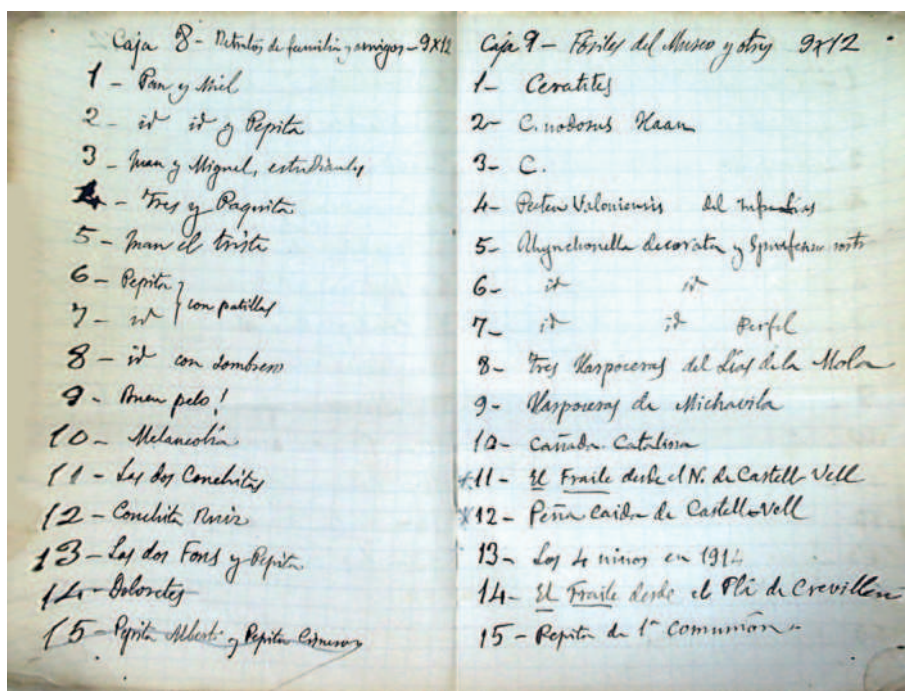 Caja 8 - Retratos de familia y amigos - 9x12
1 - Pan y Miel
2 - id id y Pepita
3 - Juan y Miguel, estudiantes
4 - Tres y Paquita
5 - Juan el trista
6 - Pepita
7 - id } con patillas
8 - id con sombrero
9 - Buen pelo!
10 - Melancolía
11 - Las dos Conchitas
12 - Conchita Ruiz
13 - Las dos Fons y Pepita
14 - Doloretes
15 - Pepita Alberti y Pepita Cisneros
Caja 9 - Fósiles del Museo y otros 9x12
1 - Ceratites
2 - C. nodosus Haan
3 - C.
4 - Pecten Valoniensis del Infralias
5 - Rhynchonella decorata y Spiriferina rostr
6 - id id
7 - id id Perfil
8 - Tres Harpoceras del Lias de la Mola
9 - Harpoceras de Michavila
10 - Cañada Catalina
11 - El Fraile desde el N. de Castell-Vell
12 - Peña caida de Castell-Vell
13 - Los 4 niños en 1914
14 - El Fraile desde el Plá de Crevillen
15 - Pepita de 1ª Comunión